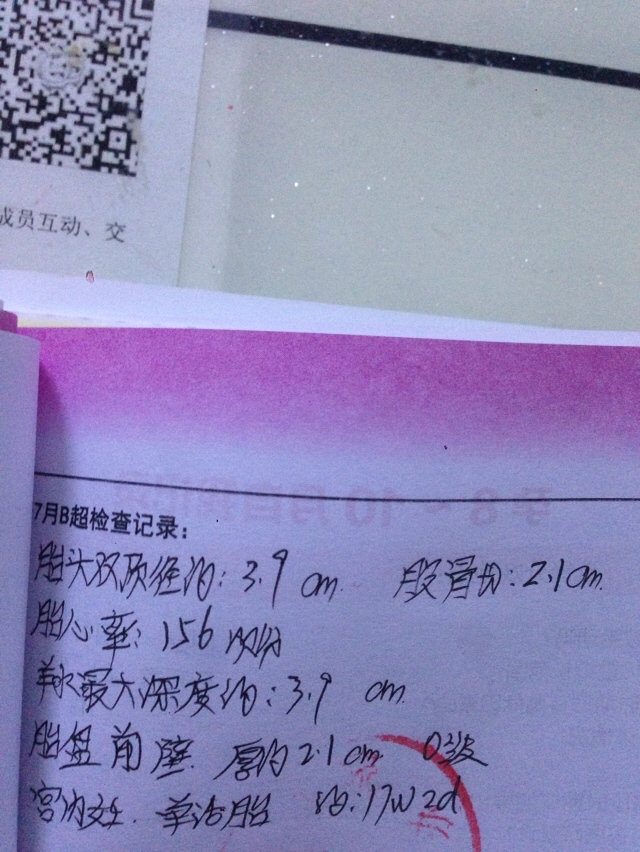 成员互动、交
7月B超检查记录:
胎头双顶径约: 3.9 cm 股骨约: 2.1cm
胎心率: 156 次/分
羊水最大深度约: 3.9 cm
胎盘前壁 厚约 2.1 cm 0级
宫内妊. 单活胎 约: 17W2d